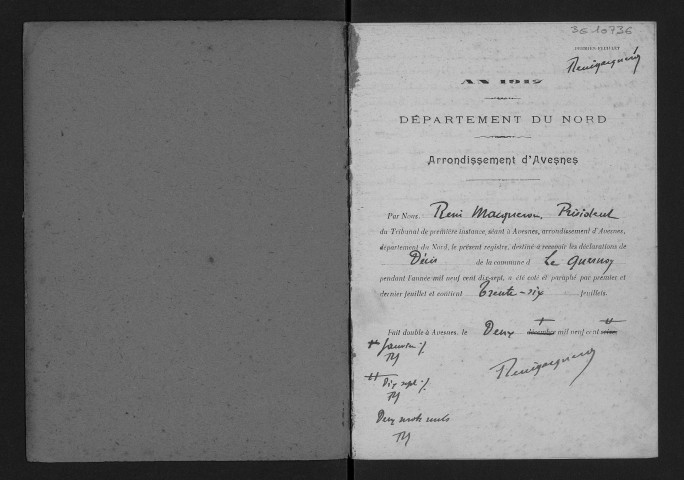 3E 10736
PREMIER FEUILLET
AN 1917
DÉPARTEMENT DU NORD
Arrondissement d'Avesnes
Par Nous, René Macqueron, Président
du Tribunal de première instance, séant à Avesnes, arrondissement d'Avesnes,
département du Nord, le présent registre, destiné à recevoir les déclarations de
Décès de la commune d Le Quesnoy
pendant l'année mil neuf cent dix-sept, a été coté et paraphé par premier et
dernier feuillet et contient Trente-six feuillets.
Fait double à Avesnes, le Deux décembre mil neuf cent seize.
Janvier
Dix sept
Deux mots nuls